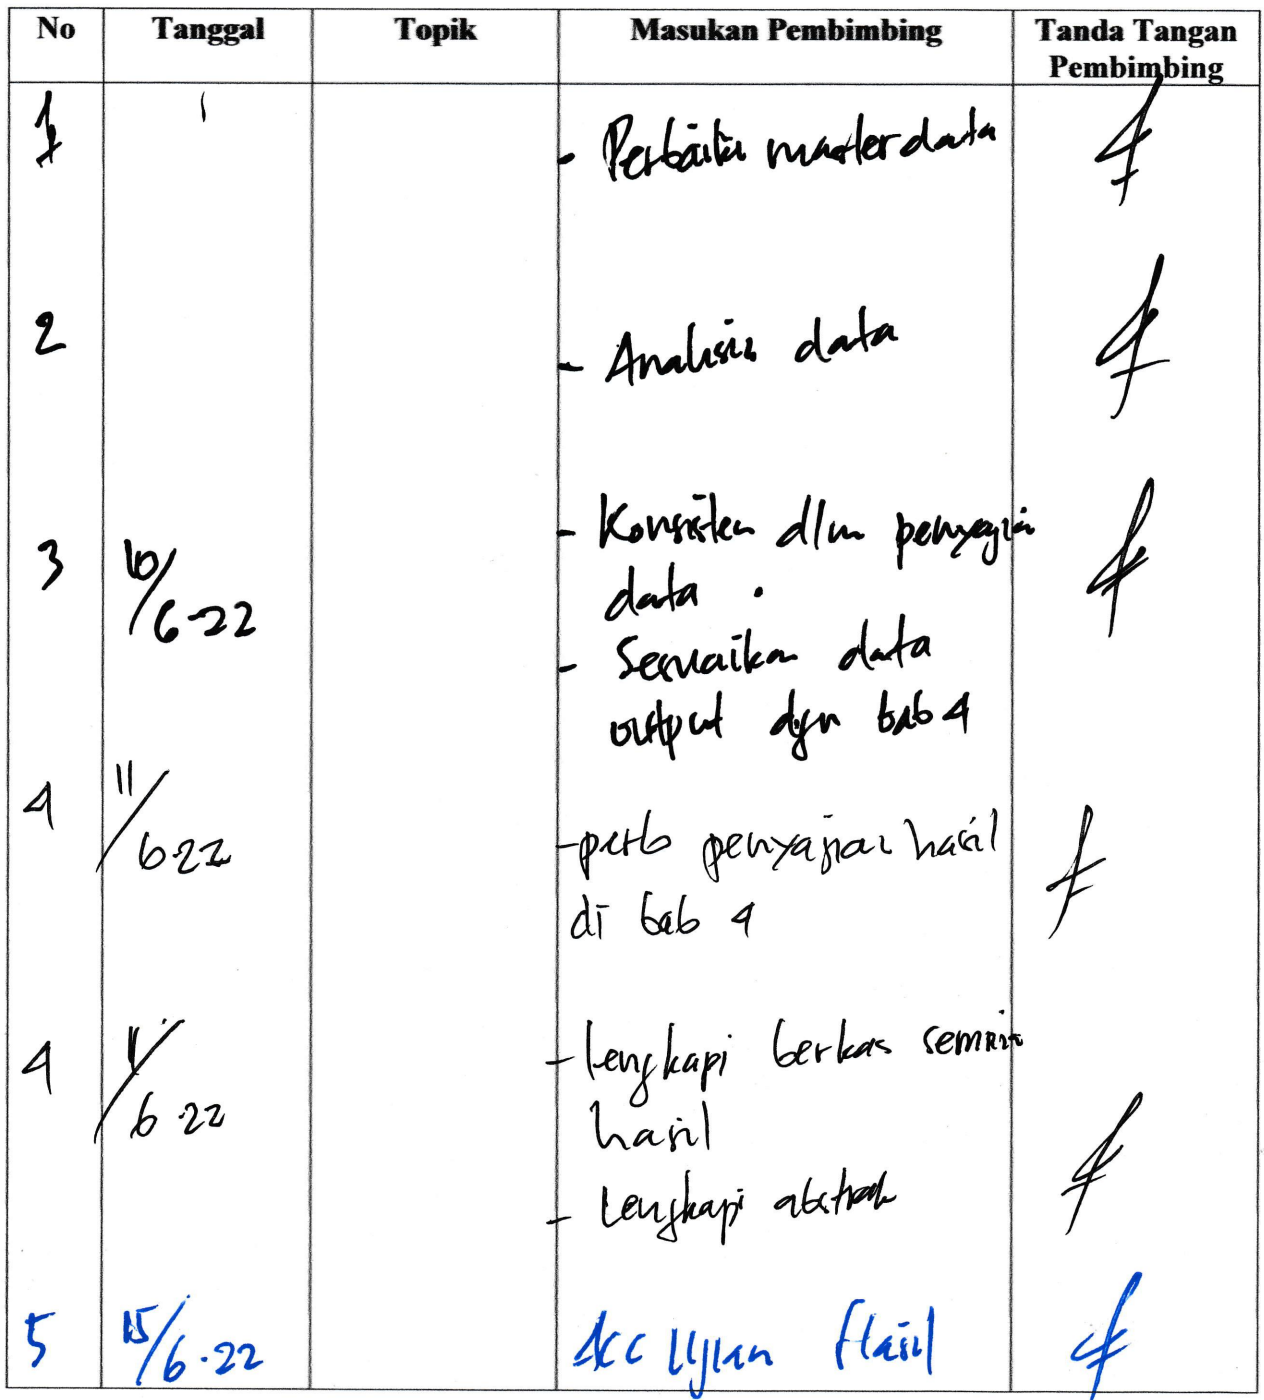 No Tanggal Topik Masukan Pembimbing Tanda Tangan Pembimbing
1 - Perbaiki master data
2 - Analisis data
3 10/6-22 - Konsisten dlm penyajian
data .
- Sesuaikan data
output dgn bab 4
4 11/6 22 - perb penyajian hasil
di bab 4
4 11/6 22 - lengkapi berkas seminar
hasil
- Lengkapi abstrak
5 15/6.22 Acc Ujian Hasil